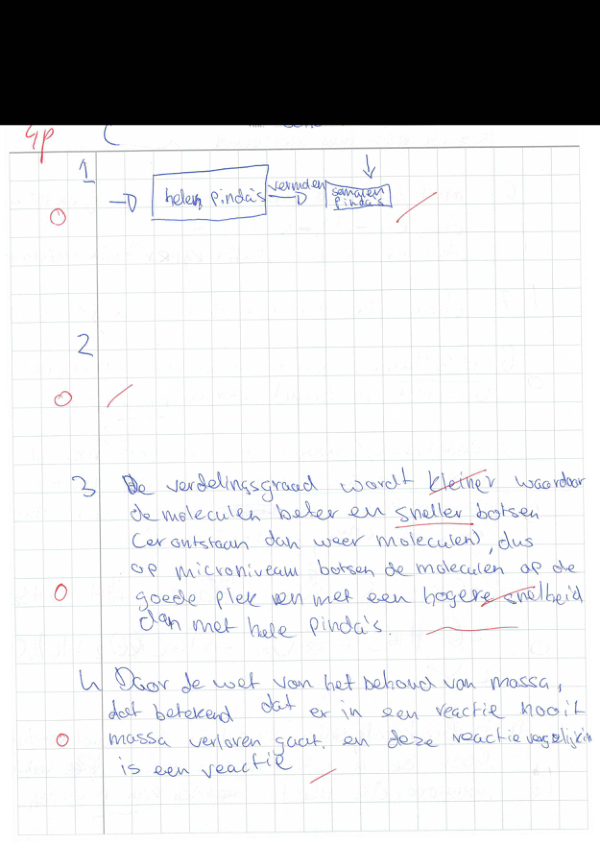 4p
1
helen pinda's vermalen pinda's
0
2
0
3 De verdelingsgraad wordt kleiner waardoor
de moleculen beter en sneller botsen
(er ontstaan dan weer moleculen), dus
op microniveau botsen de moleculen op de
0 goede plek en met een hogere snelheid
dan met hele pinda's.
4 Door de wet van het behoud van massa,
dat betekend dat er in een reactie nooit
0 massa verloren gaat. en deze reactie vergelijkin
is een reactie